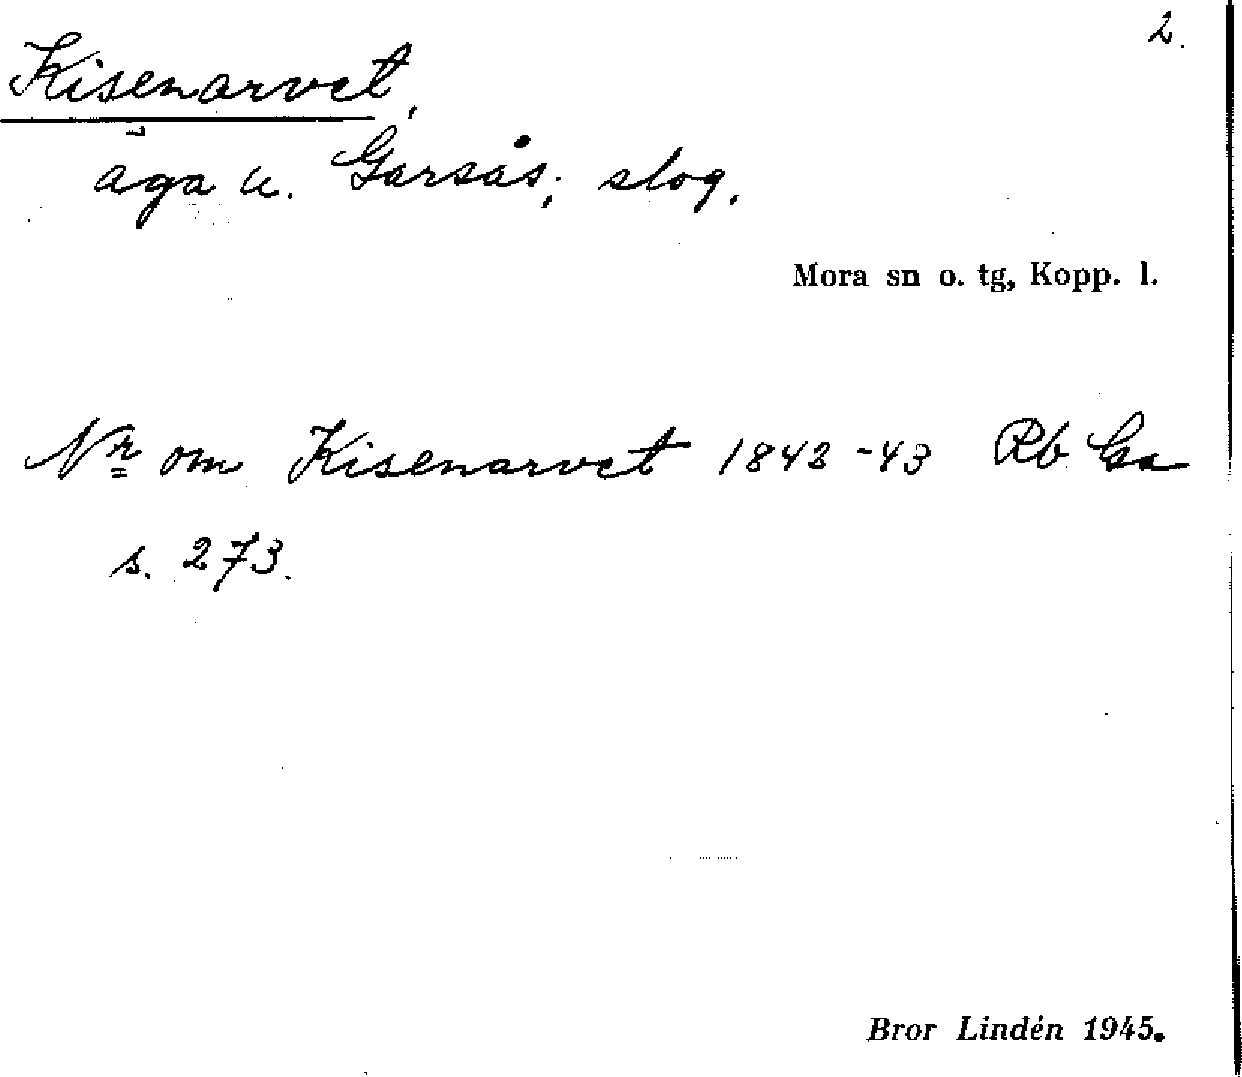 2.
Kisenarvet,
äga u. Garsås; slog.
Mora sn o. tg, Kopp. l.
Nr om Kisenarvet 1842-43 Rb Ga
s. 273.
Bror Lindén 1945.